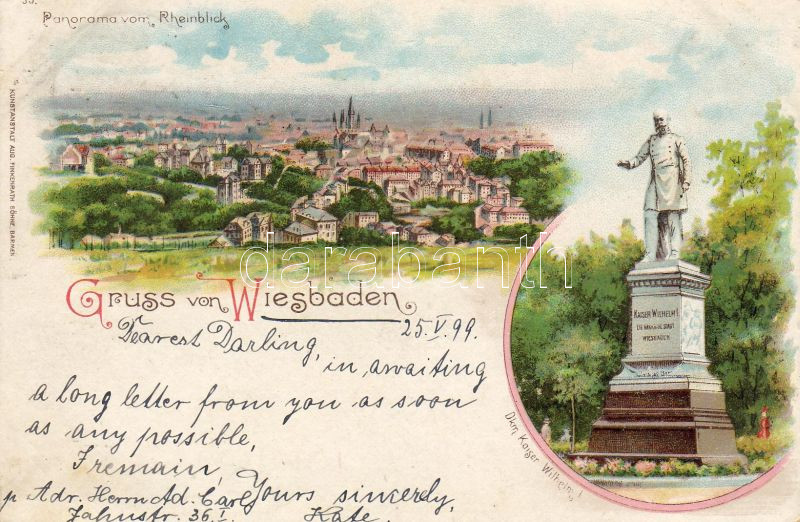 35.
Panorama vom Rheinblick
KUNSTANSTALT AUG. TINKENRATH SÖHNE BARMEN.
darabanth
Gruss von Wiesbaden.
25.V.99.
Dearest Darling,
in awaiting
a long letter from you as soon
as any possible,
I remain
Yours sincerely,
Kate.
p Adr. Herrn Ad. Carl
Jahnstr. 36.I
KAISER WILHELM I
DIE DANKBARE STADT
WIESBADEN
Dkm. Kaiser Wilhelm I